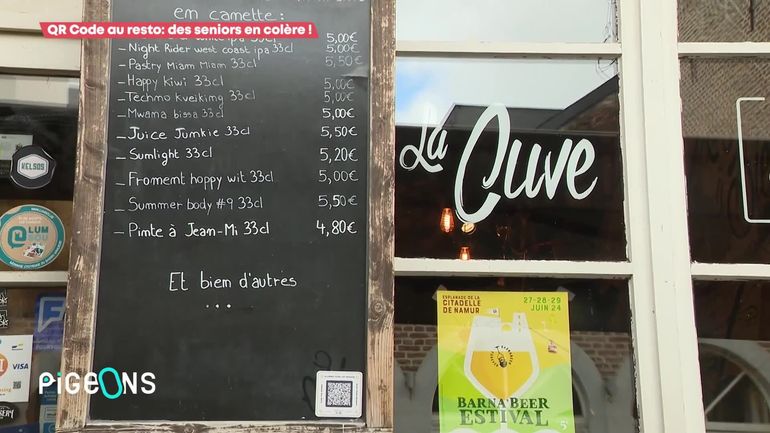 QR Code au resto: des seniors en colère !
em camette:
ipa 33cl 5,00€
_ Night Rider west coast ipa 33cl 5,00€
_ Pastry Miam Miam 33cl 5,50€
_ Happy kiwi 33cl 5,00€
_ Techno kveiking 33cl 5,00€
_ Mwama bissa 33cl 5,00€
_ Juice Junkie 33cl 5,50€
_ Sunlight 33cl 5,20€
_ Froment hoppy wit 33cl 5,00€
_ Summer body #9 33cl 5,50€
_ Pinte à Jean-Mi 33cl 4,80€
Et bien d'autres
...
La Cuve
VELSOS
LUM
VISA
ESPLANADE DE LA
CITADELLE
DE NAMUR
27-28-29
JUIN 24
BARNA'BEER
ESTIVAL
PiGEONS